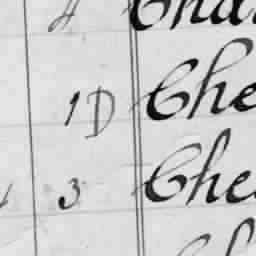 4 Cha
1 D Che
3 Che